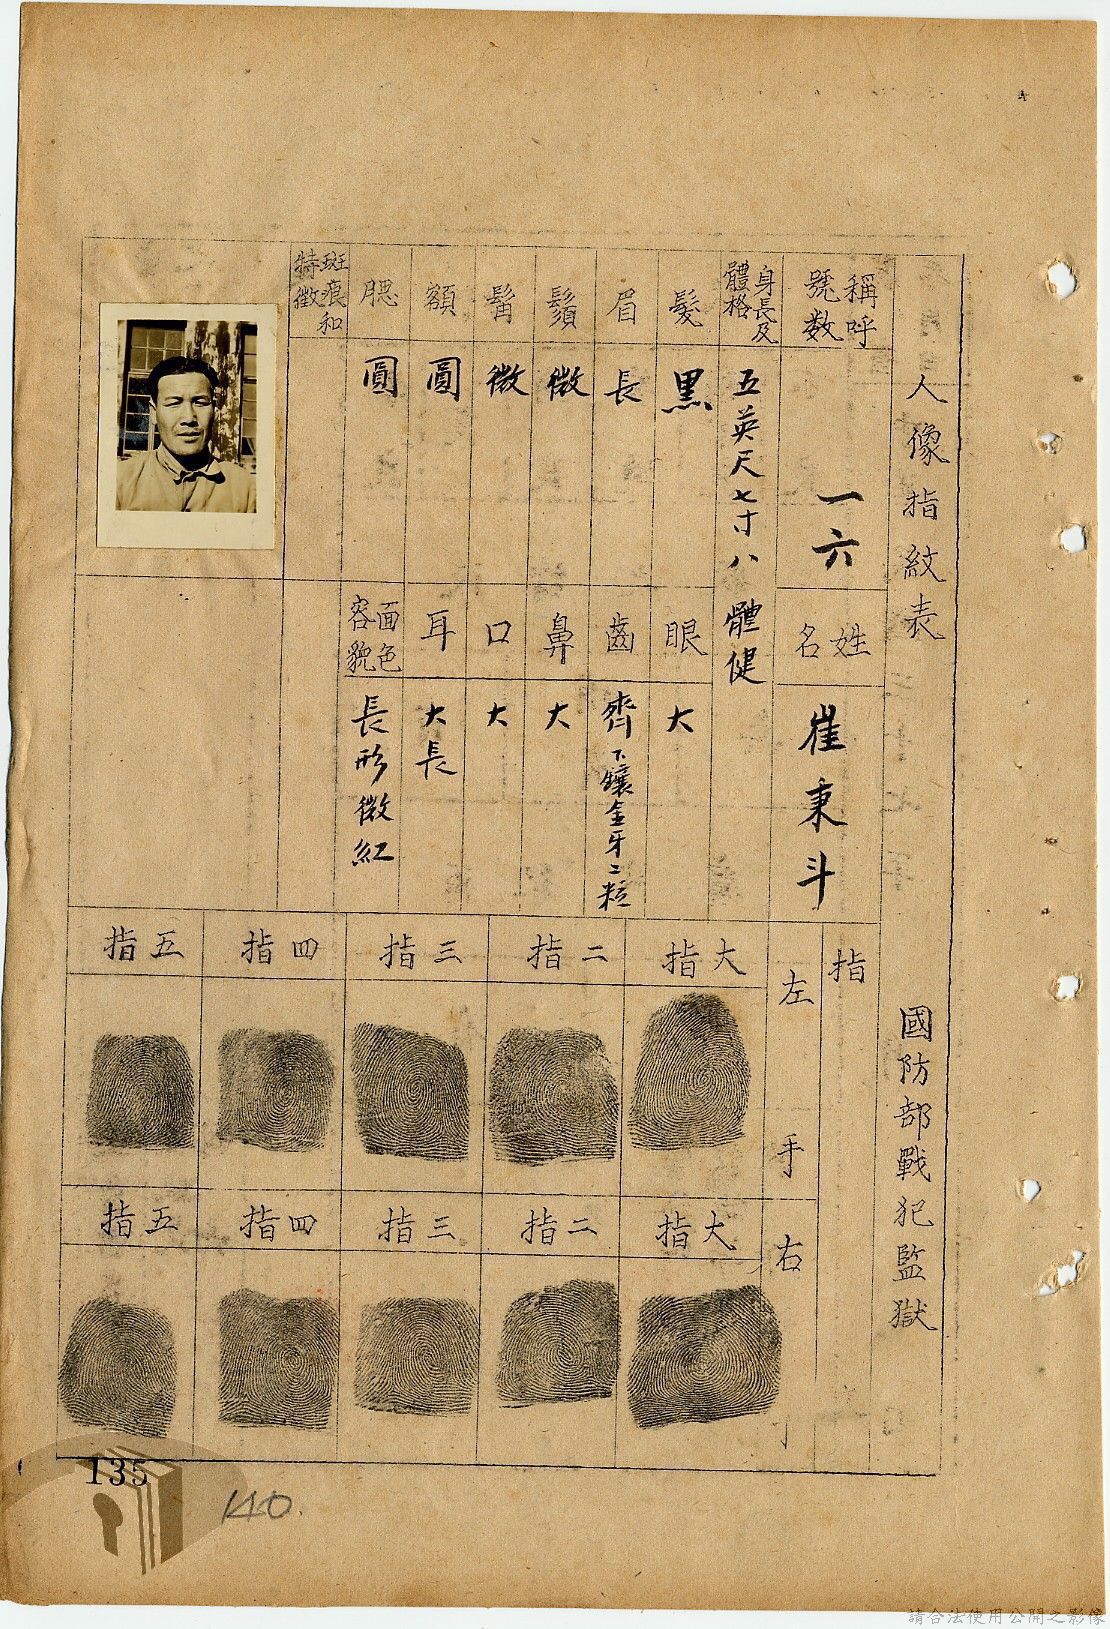 人像指紋表
國防部戰犯監獄
稱呼號数
一六
姓名
崔秉斗
身長及體格
五英尺七寸八 體健
髮
黑
眼
大
眉
長
齒
齊 下鑲金牙二粒
鬚
微
鼻
大
髯
微
口
大
額
圓
耳
大長
腮
圓
面色容貌
長形微紅
斑痕和特徵
指
左手
大指
二指
三指
四指
五指
右
大指
二指
三指
四指
五指
135
140.
請合法使用公開之影像